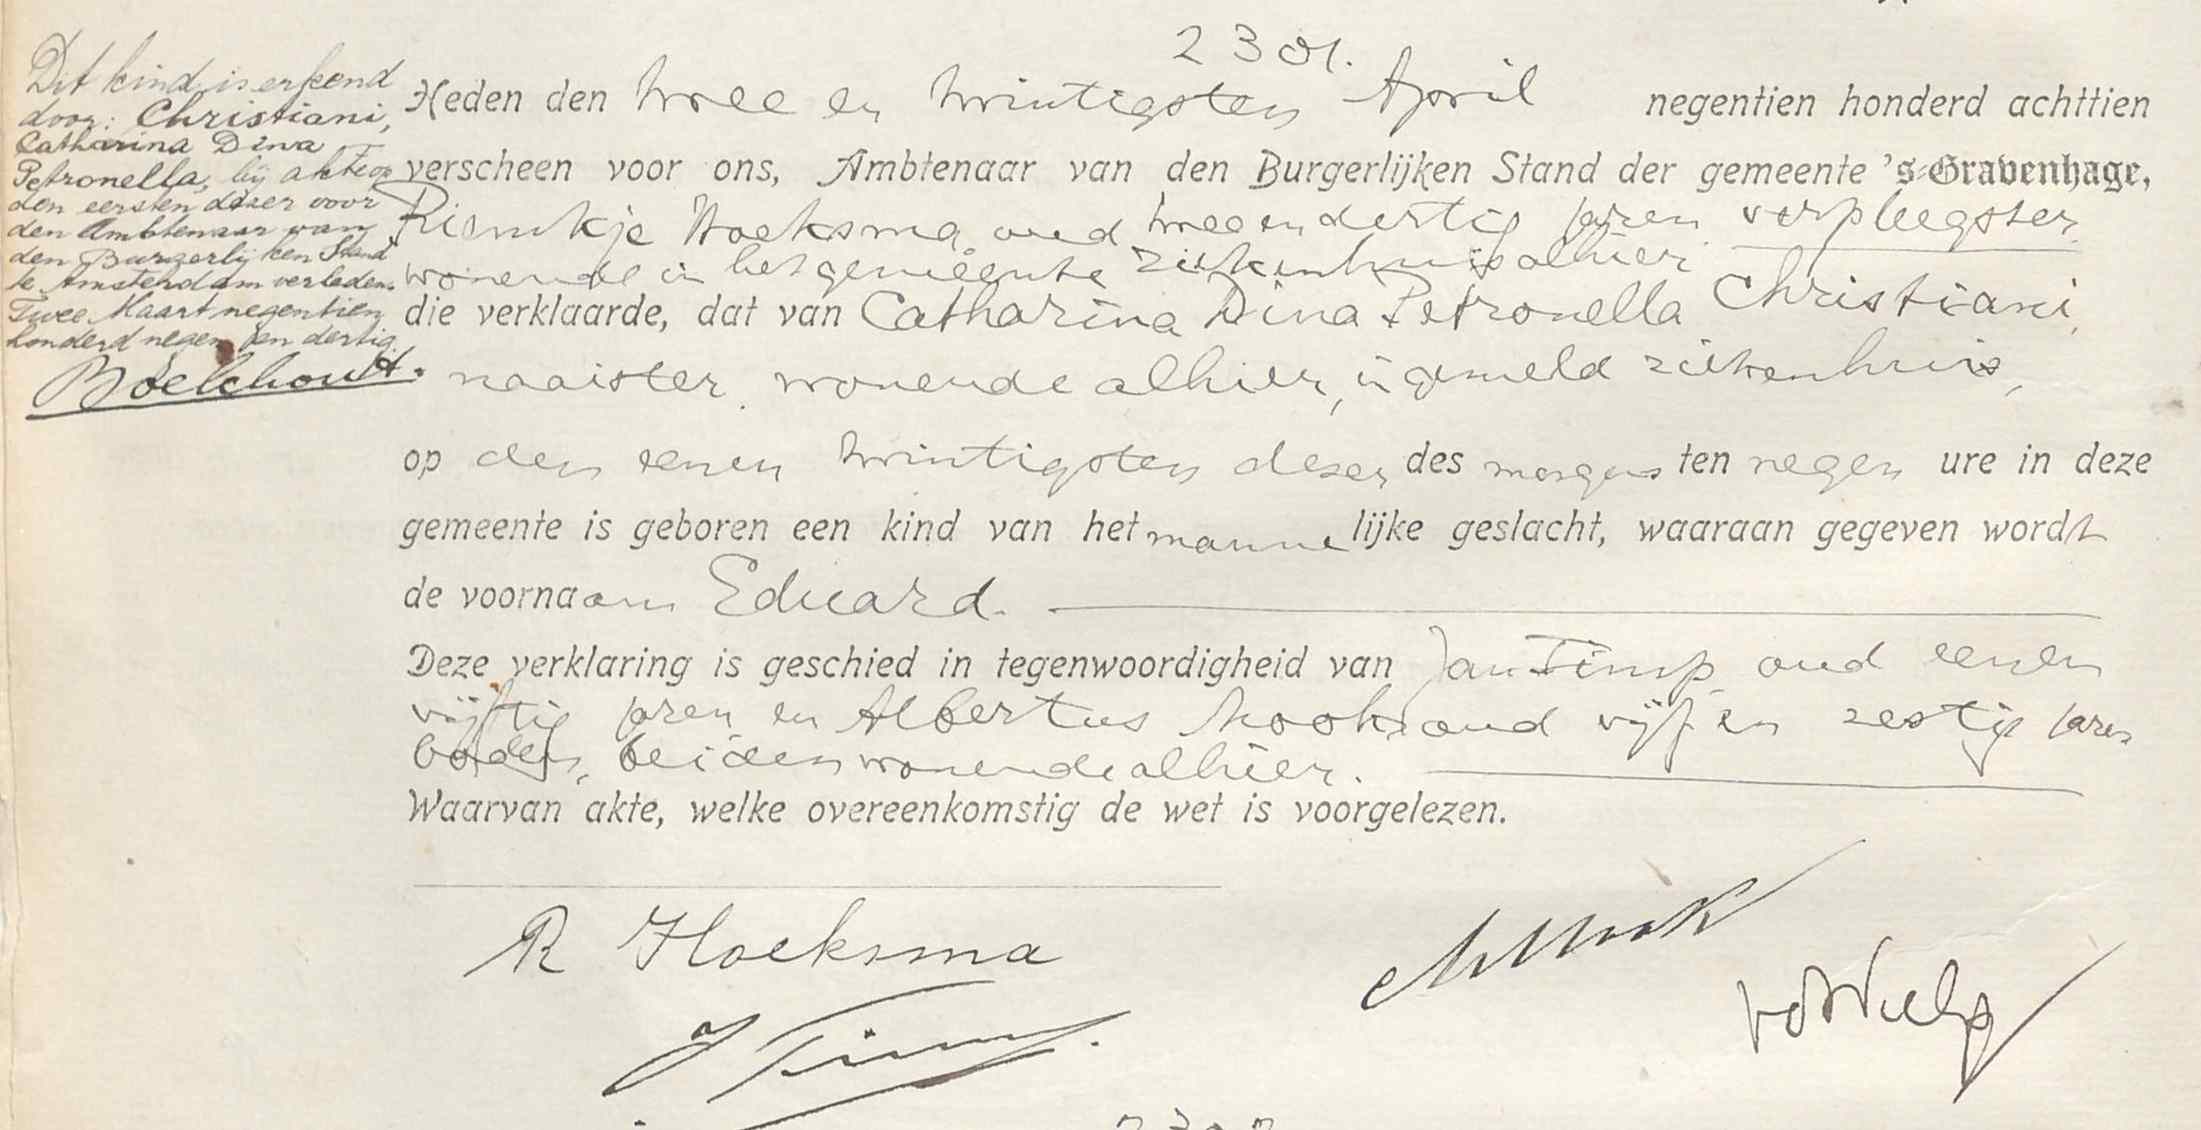 2301.
Dit kind is erkend
door: Christiani,
Catharina Dina
Petronella, bij akte op
den eersten dezer voor
den Ambtenaar van
den Burgerlijken Stand
te Amsterdam verleden.
Twee Maart negentien
honderd negen en dertig.
Boekhoudt.
Heden den twee en twintigsten April negentien honderd achttien
verscheen voor ons, Ambtenaar van den Burgerlijken Stand der gemeente 's-Gravenhage,
Riemkje Hoeksma, oud twee en dertig jaren, verpleegster,
wonende in het gemeente ziekenhuis alhier
die verklaarde, dat van Catharina Dina Petronella Christiani,
naaister, wonende alhier, in gemeld ziekenhuis,
op den eenen twintigsten dezer des morgens ten negen ure in deze
gemeente is geboren een kind van het mannelijke geslacht, waaraan gegeven wordt
de voornaam Eduard.
Deze verklaring is geschied in tegenwoordigheid van Jan Timp oud eenen
vijftig jaren en Albertus Mook, oud vijf en zestig jaren
boden, beiden wonende alhier.
Waarvan akte, welke overeenkomstig de wet is voorgelezen.
R Hoeksma
J Timp.